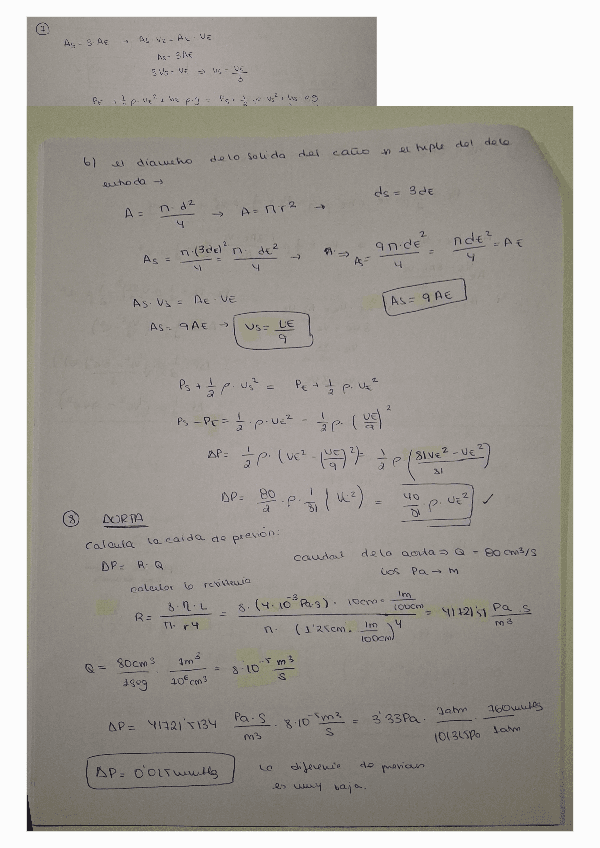 ①
As = 3 AE → As · Vs = AE · VE
As = 3AE
3 Vs = VE ⇒ Vs = VE/3
b) el diametro de la salida del caño es el triple del de la
entrada →
ds = 3dE
A = π·d²/4 → A = πr² →
As = π·(3dE)²/4 = π·dE²/4 → ⇒ As = 9π·dE²/4 = πdE²/4 = AE
As · Vs = AE · VE
As = 9AE
As = 9AE → Vs = VE/9
Ps + 1/2 ρ·Vs² = PE + 1/2 ρ·VE²
Ps − PE = 1/2 · ρ·VE² − 1/2 ρ·(VE/9)²
ΔP = 1/2 ρ·(VE² − (VE/9)²) = 1/2 ρ (81VE² − VE²/81)
ΔP = 80/2 · ρ · 1/81 (VE²) = 40/81 ρ·VE² ✓
⑧ AORTA
Calcula la caída de presión:
ΔP = R·Q
caudal de la aorta ⇒ Q = 80cm³/s
los Pa → m
calcular la resistencia
R = 8·η·L/π·r4 = 8·(4·10⁻³Pa·s)·10cm·1m/100cm / π·(1'25cm·1m/100cm)⁴ = 41721'51 Pa·s/m³
Q = 80cm³/1seg · 1m³/10⁶cm³ = 8·10⁻⁵ m³/s
ΔP = 41721'5134 Pa·s/m³ · 8·10⁻⁵ m³/s = 3'33Pa · 1atm/101325Pa · 760mmHg/1atm
ΔP = 0'025mmHg
la diferencia de presion
es muy baja.